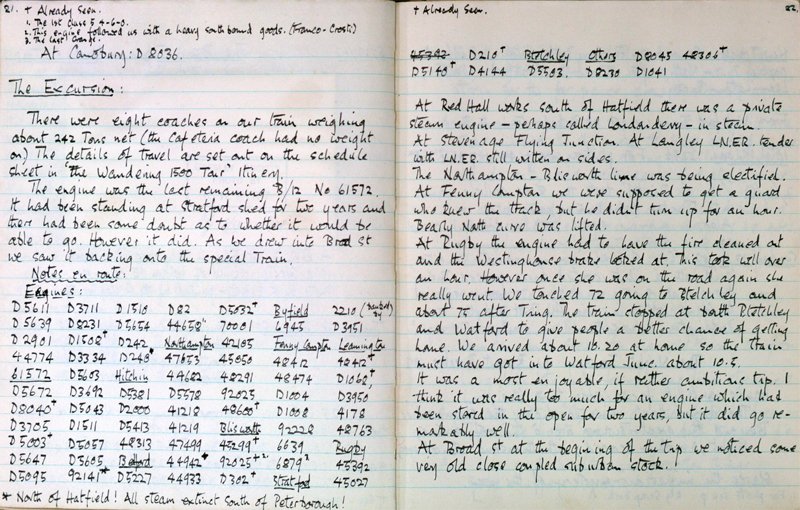 21. + Already Seen.
1. The 1st class 5 4-6-0.
2. This engine followed us with a heavy southbound goods. (Franco-Crosti)
3. The last Grange.
At Canonbury: D8036.
The Excursion:
There were eight coaches on our train weighing
about 242 Tons net (the Cafeteria coach had no weight
on) The details of travel are set out on the schedule
sheet in the 'Wandering 1500 Tour' Itinery.
The engine was the last remaining B/12 No 61572.
It had been standing at Stratford shed for two years and
there had been some doubt as to whether it would be
able to go. However it did. As we drew into Broad St
we saw it backing onto the special Train.
Notes en route:
Engines:
D5611 D3711 D1510 D82 D5032+ Byfield 2210
D5639 D8231 D5654 44658 70001 6945 D3951
D2901 D1508+ D242 Northampton 42105 Fenny Compton Leamington
44774 D3334 D248+ 47653 45050 48412 48412+
61572 D5603 Hitchin 44682 48291 48474 D1068+
D5672 D3692 D5381 D5578 92025 D1004 D3950
D8040+ D5043 D2000 41218 48600+ D1008 4178
D3705 D1511 D5413 41219 Blisworth 92228 48763
D5003+ D5057 48313 47499 45299+ 6639 Rugby
D5647 D5605 Bedford 44942+ 92025+2. 6879³ 45392
D5095 92141+* D5227 44933 D302+ Stratford 45027
* North of Hatfield! All steam extinct south of Peterborough!
+ Already Seen. 22.
45392 D210+ Bletchley Others D8045 48306+
D5140+ D4144 D5503. D8230 D1041
At Red Hall works south of Hatfield there was a private
steam engine – perhaps called Londonderry – in steam.
At Stevenage Flying Junction. At Langley L.N.E.R. tender
with L.N.E.R. still written on sides.
The Northampton - Blisworth line was being electrified.
At Fenny Compton we were supposed to get a guard
who knew the track, but he didn't turn up for an hour.
Bearly North curve was lifted.
At Rugby the engine had to have the fire cleaned out
and the Westinghouse brake looked at. This took well over
an hour. However once she was on the road again she
really went. We touched 72 going to Bletchley and
about 75 after Tring. The train stopped at both Bletchley
and Watford to give people a better chance of getting
home. We arrived about 10.20 at home so the train
must have got into Watford Junc. about 10.5.
It was a most enjoyable, if rather ambitious trip. I
think it was really too much for an engine which had
been stored in the open for two years, but it did go re-
markably well.
At Broad St at the begining of the trip we noticed some
very old close coupled suburban stock.